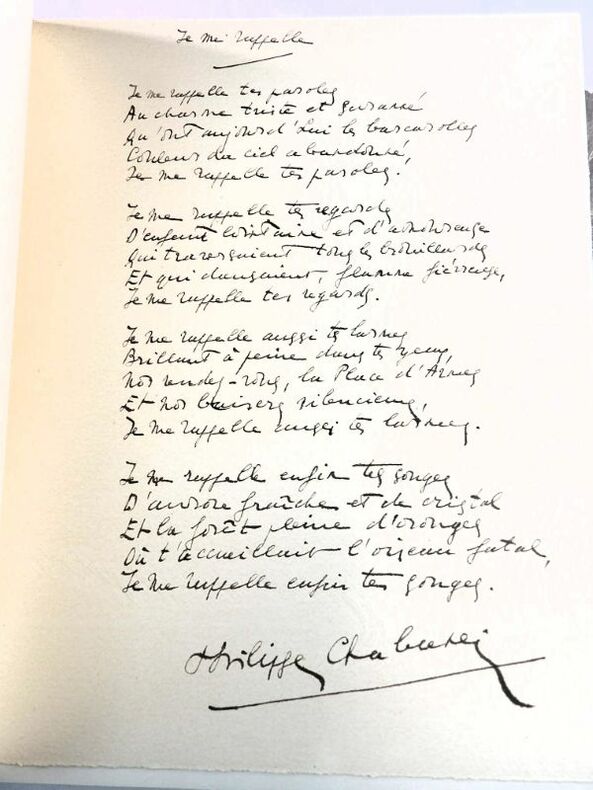 Je me rappelle
Je me rappelle tes paroles
Au charme triste et suranné
Qu'ont aujourd'hui les barcarolles
Couleur du ciel abandonné,
Je me rappelle tes paroles.
Je me rappelle tes regards
D'enfant lointaine et d'amoureuse
Qui traversaient tous les brouillards
Et qui dansaient, flamme fiévreuse,
Je me rappelle tes regards.
Je me rappelle aussi tes larmes
Brillant à peine dans tes yeux,
Nos rendez-vous, la Place d'Armes
Et nos baisers silencieux,
Je me rappelle aussi tes larmes.
Je me rappelle enfin tes songes
D'aurore fraîche et de cristal
Et la forêt pleine d'oronges
Où t'accueillait l'oiseau fatal,
Je me rappelle enfin tes songes.
Philippe Chabaneix